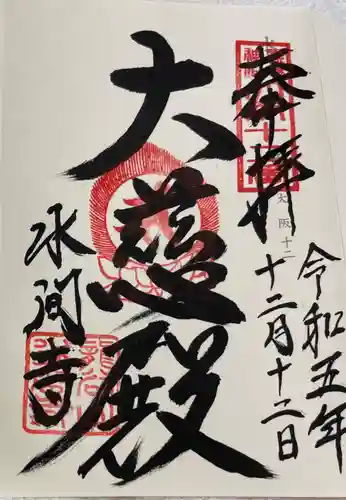 奉拝
大慈殿
水間寺
令和五年
十二月十二日
大阪十二